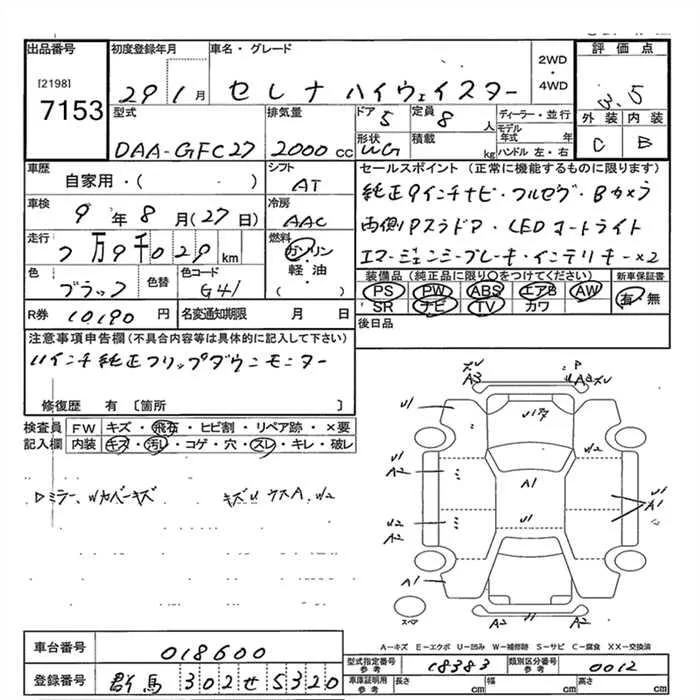 出品番号
[2198]
7153
初度登録年月
29 1月
車名・グレード
セレナ ハイウェイスター
2WD
・
4WD
評価点
3.5
外装 内装
C B
型式
DAA-GFC27
排気量
2000 cc
ドア 5
定員 8 人
形状 WG
積載 kg
ディーラー・並行
モデル年式 年
ハンドル 左・右
車歴
自家用・( )
シフト
AT
車検
9年8月(27日)
冷房
AAC
走行
2万9千029 km
燃料
ガソリン
・
軽油
( )
色
ブラック
色替
色コード
G41
R券 10190 円
名変通知期限 月 日
セールスポイント(正常に機能するものに限ります)
純正9インチナビ・フルセグ・Bカメラ
両側Pスラドア・LEDオートライト
エマージェンシーブレーキ・インテリキー×2
装備品(純正品に限り○をつけてください)
PS PW ABS エアB AW
SR ナビ TV カワ
新車保証書
有・無
後日品
注意事項申告欄(不具合内容等は具体的に記入して下さい)
11インチ純正フリップダウンモニター
修復歴 有〔箇所 〕
検査員 FW キズ・飛石・ヒビ割・リペア跡・×要
記入欄 内装 キズ・汚レ・コゲ・穴・スレ・キレ・破レ
ミラー、Wカバーキズ
A3
U1
U1
A1
A2
U1
U2
A2
U1
A1
A1
スペア
A…キズ E…エクボ U…凹み W…補修跡 S…サビ C…腐食 XX…交換済
車台番号 018600
登録番号 群馬 302 せ 5320
型式指定番号 参考 18383
類別区分番号 参考 0012
車庫証明用 参考 長さ cm 幅 cm 高さ cm